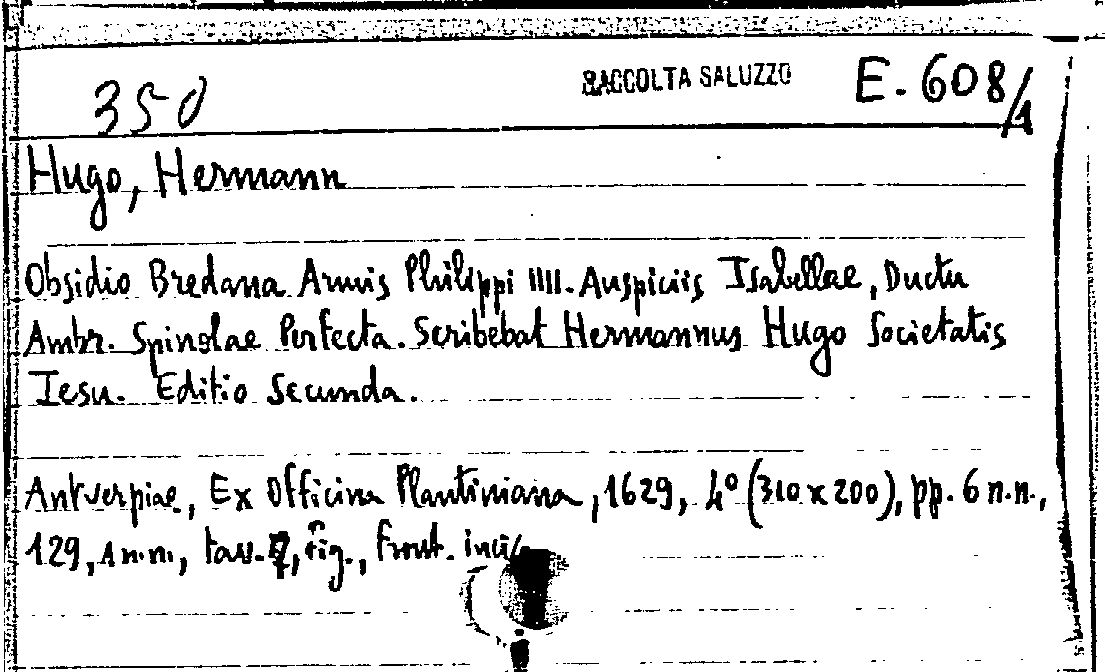 350 RACCOLTA SALUZZO E. 608/1
Hugo, Hermann
Obsidio Bredana Armis Philippi IIII. Auspiciis Isabellae, Ductu
Ambr. Spinolae Perfecta. Scribebat Hermannus Hugo Societatis
Iesu. Editio Secunda.
Antverpiae, Ex Officina Plantiniana, 1629, 4° (310 x 200), pp. 6 n.n.,
129, 1 n.n., tav. fig., front.